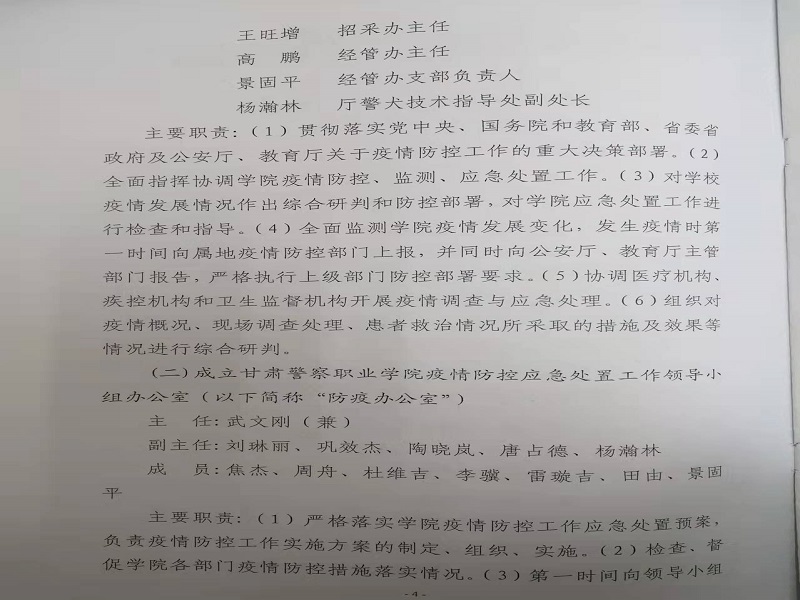 王旺增 招采办主任
高 鹏 经管办主任
景固平 经管办支部负责人
杨瀚林 厅警犬技术指导处副处长
主要职责:(1)贯彻落实党中央、国务院和教育部、省委省
政府及公安厅、教育厅关于疫情防控工作的重大决策部署。(2)
全面指挥协调学院疫情防控、监测、应急处置工作。(3)对学校
疫情发展情况作出综合研判和防控部署,对学院应急处置工作进
行检查和指导。(4)全面监测学院疫情发展变化,发生疫情时第
一时间向属地疫情防控部门上报,并同时向公安厅、教育厅主管
部门报告,严格执行上级部门防控部署要求。(5)协调医疗机构、
疾控机构和卫生监督机构开展疫情调查与应急处理。(6)组织对
疫情概况、现场调查处理、患者救治情况所采取的措施及效果等
情况进行综合研判。
(二)成立甘肃警察职业学院疫情防控应急处置工作领导小
组办公室(以下简称“防疫办公室”)
主 任:武文刚(兼)
副主任:刘琳丽、巩效杰、陶晓岚、唐占德、杨瀚林
成 员:焦杰、周舟、杜维吉、李骥、雷璇吉、田由、景固
平
主要职责:(1)严格落实学院疫情防控工作应急处置预案,
负责疫情防控工作实施方案的制定、组织、实施。(2)检查、督
促学院各部门疫情防控措施落实情况。(3)第一时间向领导小组
-4-